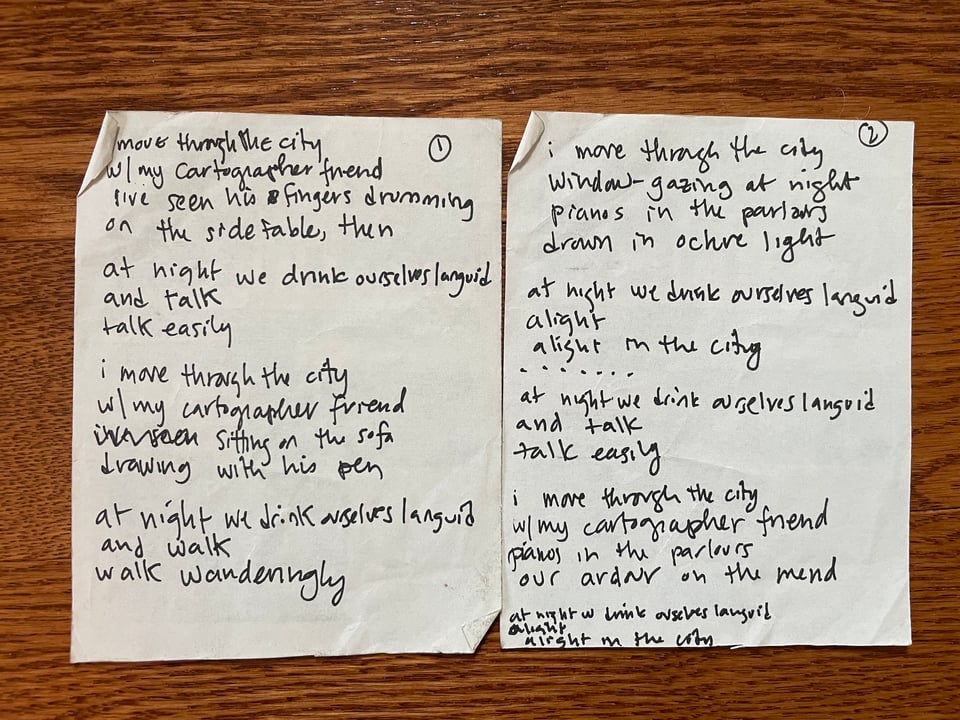 ①
move through the city
w/ my cartographer friend
i've seen his fingers drumming
on the side table, then
at night we drink ourselves languid
and talk
talk easily
i move through the city
w/ my cartographer friend
sitting on the sofa
drawing with his pen
at night we drink ourselves languid
and walk
walk wanderingly
②
i move through the city
window-gazing at night
pianos in the parlors
drown in ochre light
at night we drink ourselves languid
alight
alight in the city
.......
at night we drink ourselves languid
and talk
talk easily
i move through the city
w/ my cartographer friend
pianos in the parlours
our ardour on the mend
at night w drink ourselves languid
alight
alight in the city